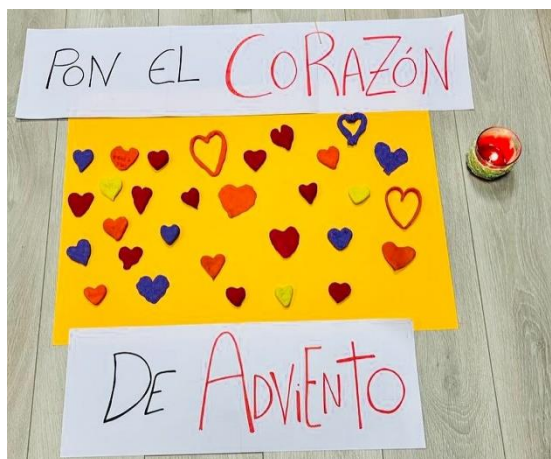 PON EL CORAZÓN
DE ADVIENTO